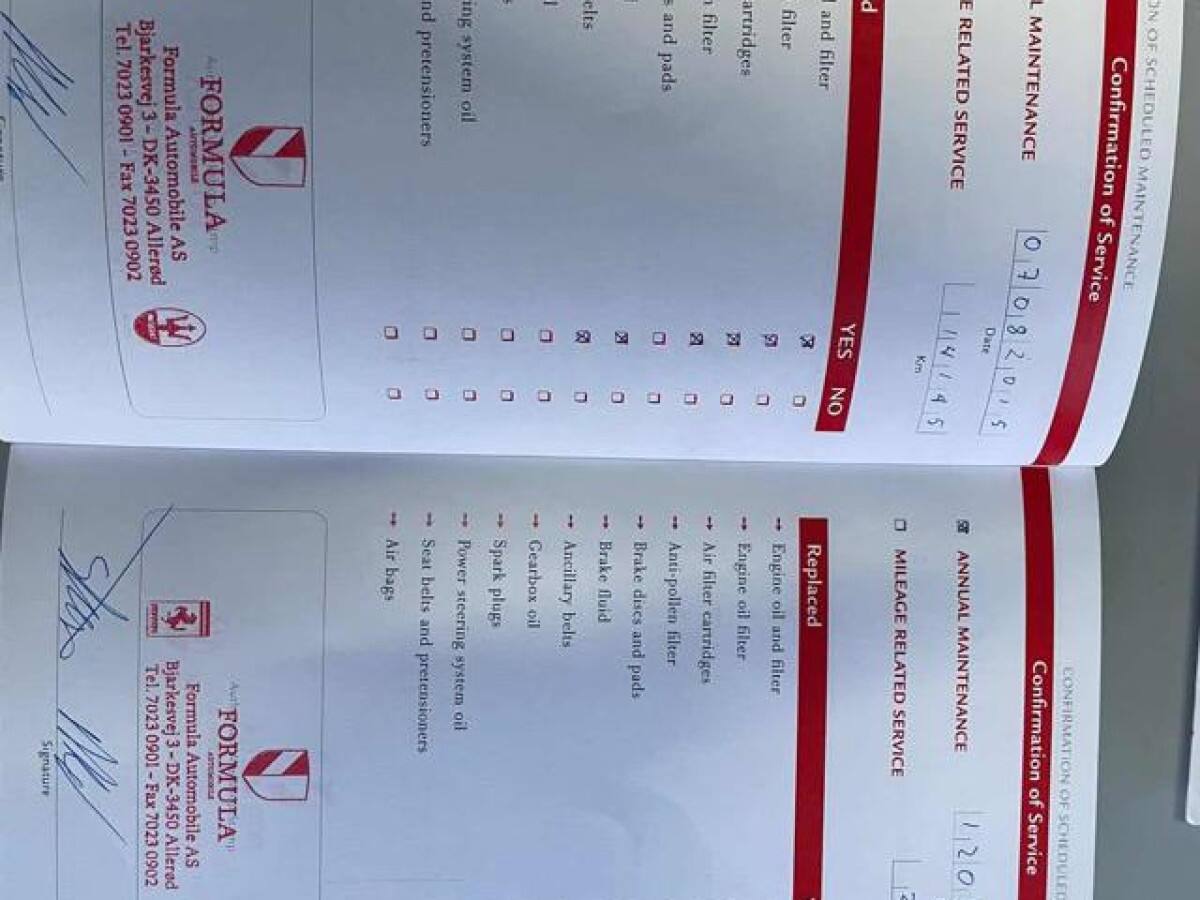 ON OF SCHEDULED MAINTENANCE
Confirmation of Service
L MAINTENANCE 07082015
Date
E RELATED SERVICE
Km
d YES NO
and filter
filter
artridges
filter
s and pads
elts
ing system oil
nd pretensioners
FORMULA
AUTOMOBILE
Formula Automobile AS
Bjarkesvej 3 - DK-3450 Allerød
Tel. 7023 0901 - Fax 7023 0902
CONFIRMATION OF SCHEDULED
Confirmation of Service
ANNUAL MAINTENANCE 120
MILEAGE RELATED SERVICE
Replaced
→ Engine oil and filter
→ Engine oil filter
→ Air filter cartridges
→ Anti-pollen filter
→ Brake discs and pads
→ Brake fluid
→ Ancillary belts
→ Gearbox oil
→ Spark plugs
→ Power steering system oil
→ Seat belts and pretensioners
→ Air bags
FORMULA
AUTOMOBILE
Formula Automobile AS
Bjarkesvej 3 - DK-3450 Allerød
Tel. 7023 0901 - Fax 7023 0902
Signature